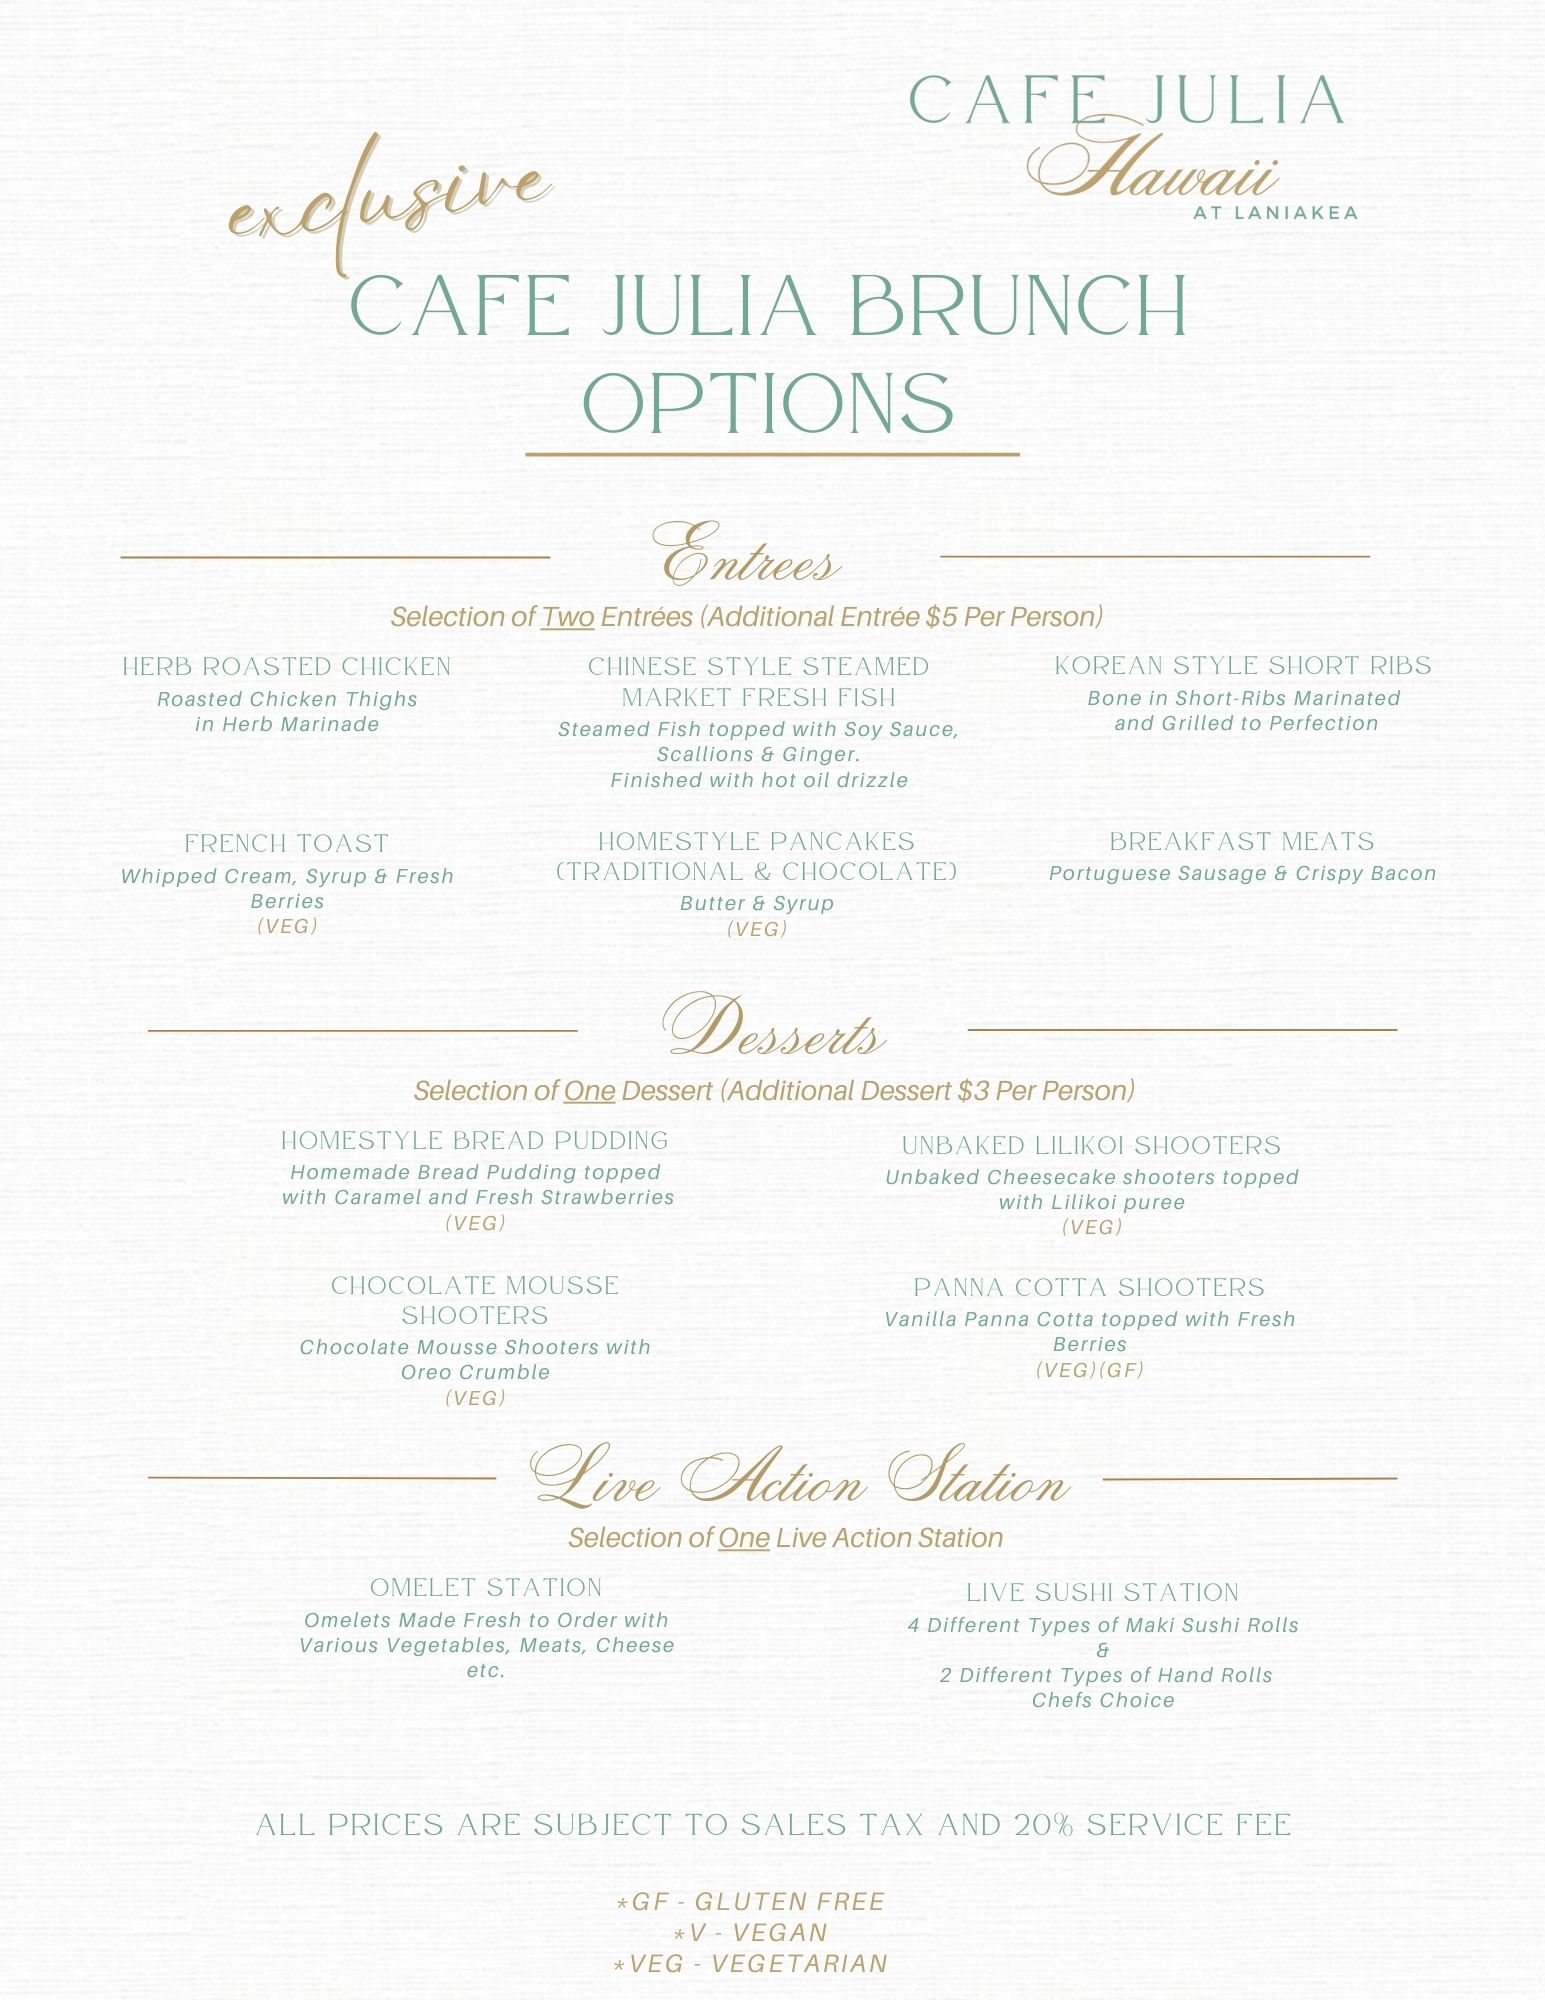 CAFE JULIA
Hawaii
AT LANIAKEA
exclusive
CAFE JULIA BRUNCH
OPTIONS
Entrees
Selection of Two Entrées (Additional Entrée $5 Per Person)
HERB ROASTED CHICKEN
Roasted Chicken Thighs
in Herb Marinade
CHINESE STYLE STEAMED
MARKET FRESH FISH
Steamed Fish topped with Soy Sauce,
Scallions & Ginger.
Finished with hot oil drizzle
KOREAN STYLE SHORT RIBS
Bone in Short-Ribs Marinated
and Grilled to Perfection
FRENCH TOAST
Whipped Cream, Syrup & Fresh
Berries
(VEG)
HOMESTYLE PANCAKES
(TRADITIONAL & CHOCOLATE)
Butter & Syrup
(VEG)
BREAKFAST MEATS
Portuguese Sausage & Crispy Bacon
Desserts
Selection of One Dessert (Additional Dessert $3 Per Person)
HOMESTYLE BREAD PUDDING
Homemade Bread Pudding topped
with Caramel and Fresh Strawberries
(VEG)
UNBAKED LILIKOI SHOOTERS
Unbaked Cheesecake shooters topped
with Lilikoi puree
(VEG)
CHOCOLATE MOUSSE
SHOOTERS
Chocolate Mousse Shooters with
Oreo Crumble
(VEG)
PANNA COTTA SHOOTERS
Vanilla Panna Cotta topped with Fresh
Berries
(VEG)(GF)
Live Action Station
Selection of One Live Action Station
OMELET STATION
Omelets Made Fresh to Order with
Various Vegetables, Meats, Cheese
etc.
LIVE SUSHI STATION
4 Different Types of Maki Sushi Rolls
&
2 Different Types of Hand Rolls
Chefs Choice
ALL PRICES ARE SUBJECT TO SALES TAX AND 20% SERVICE FEE
*GF - GLUTEN FREE
*V - VEGAN
*VEG - VEGETARIAN